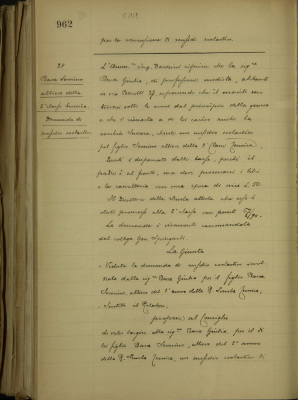 962
per la concessione di sussidi scolastici.
28
Bava Severino
allievo della
2ª classe tecnica.
Domanda di
sussidio scolastico
L'Assess. Ing. riferisce che la sig.ra
Bava Giulia, di professione modista, abitante
in via 27, esponendo che il marito
sotto le armi dal principio della guerra
e che è rimasta a di lei carico anche la
vecchia suocera, chiede un sussidio scolastico
pel figlio Severino allievo della 2ª classe tecnica.
è dispensato dalle tasse, perchè il
padre è al fronte, ma deve provvedersi i libri
e la cancelleria con una spesa di
Il Direttore della Scuola attesta che egli è
stato promosso alla 2ª classe con punti 7/10.
La domanda è vivamente raccomandata
dal collega
La Giunta
- Veduta la domanda di sussidio scolastico
dalla sig.ra Bava Giulia per il figlio Bava
Severino, allievo del 2º anno della R. Scuola Tecnica,
- Sentito il Relatore,
propone al Consiglio
di voler largire alla sig.ra Bava Giulia, per il di
lei figlio Bava Severino, allievo del 2º anno
della R. Scuola Tecnica, un sussidio scolastico di